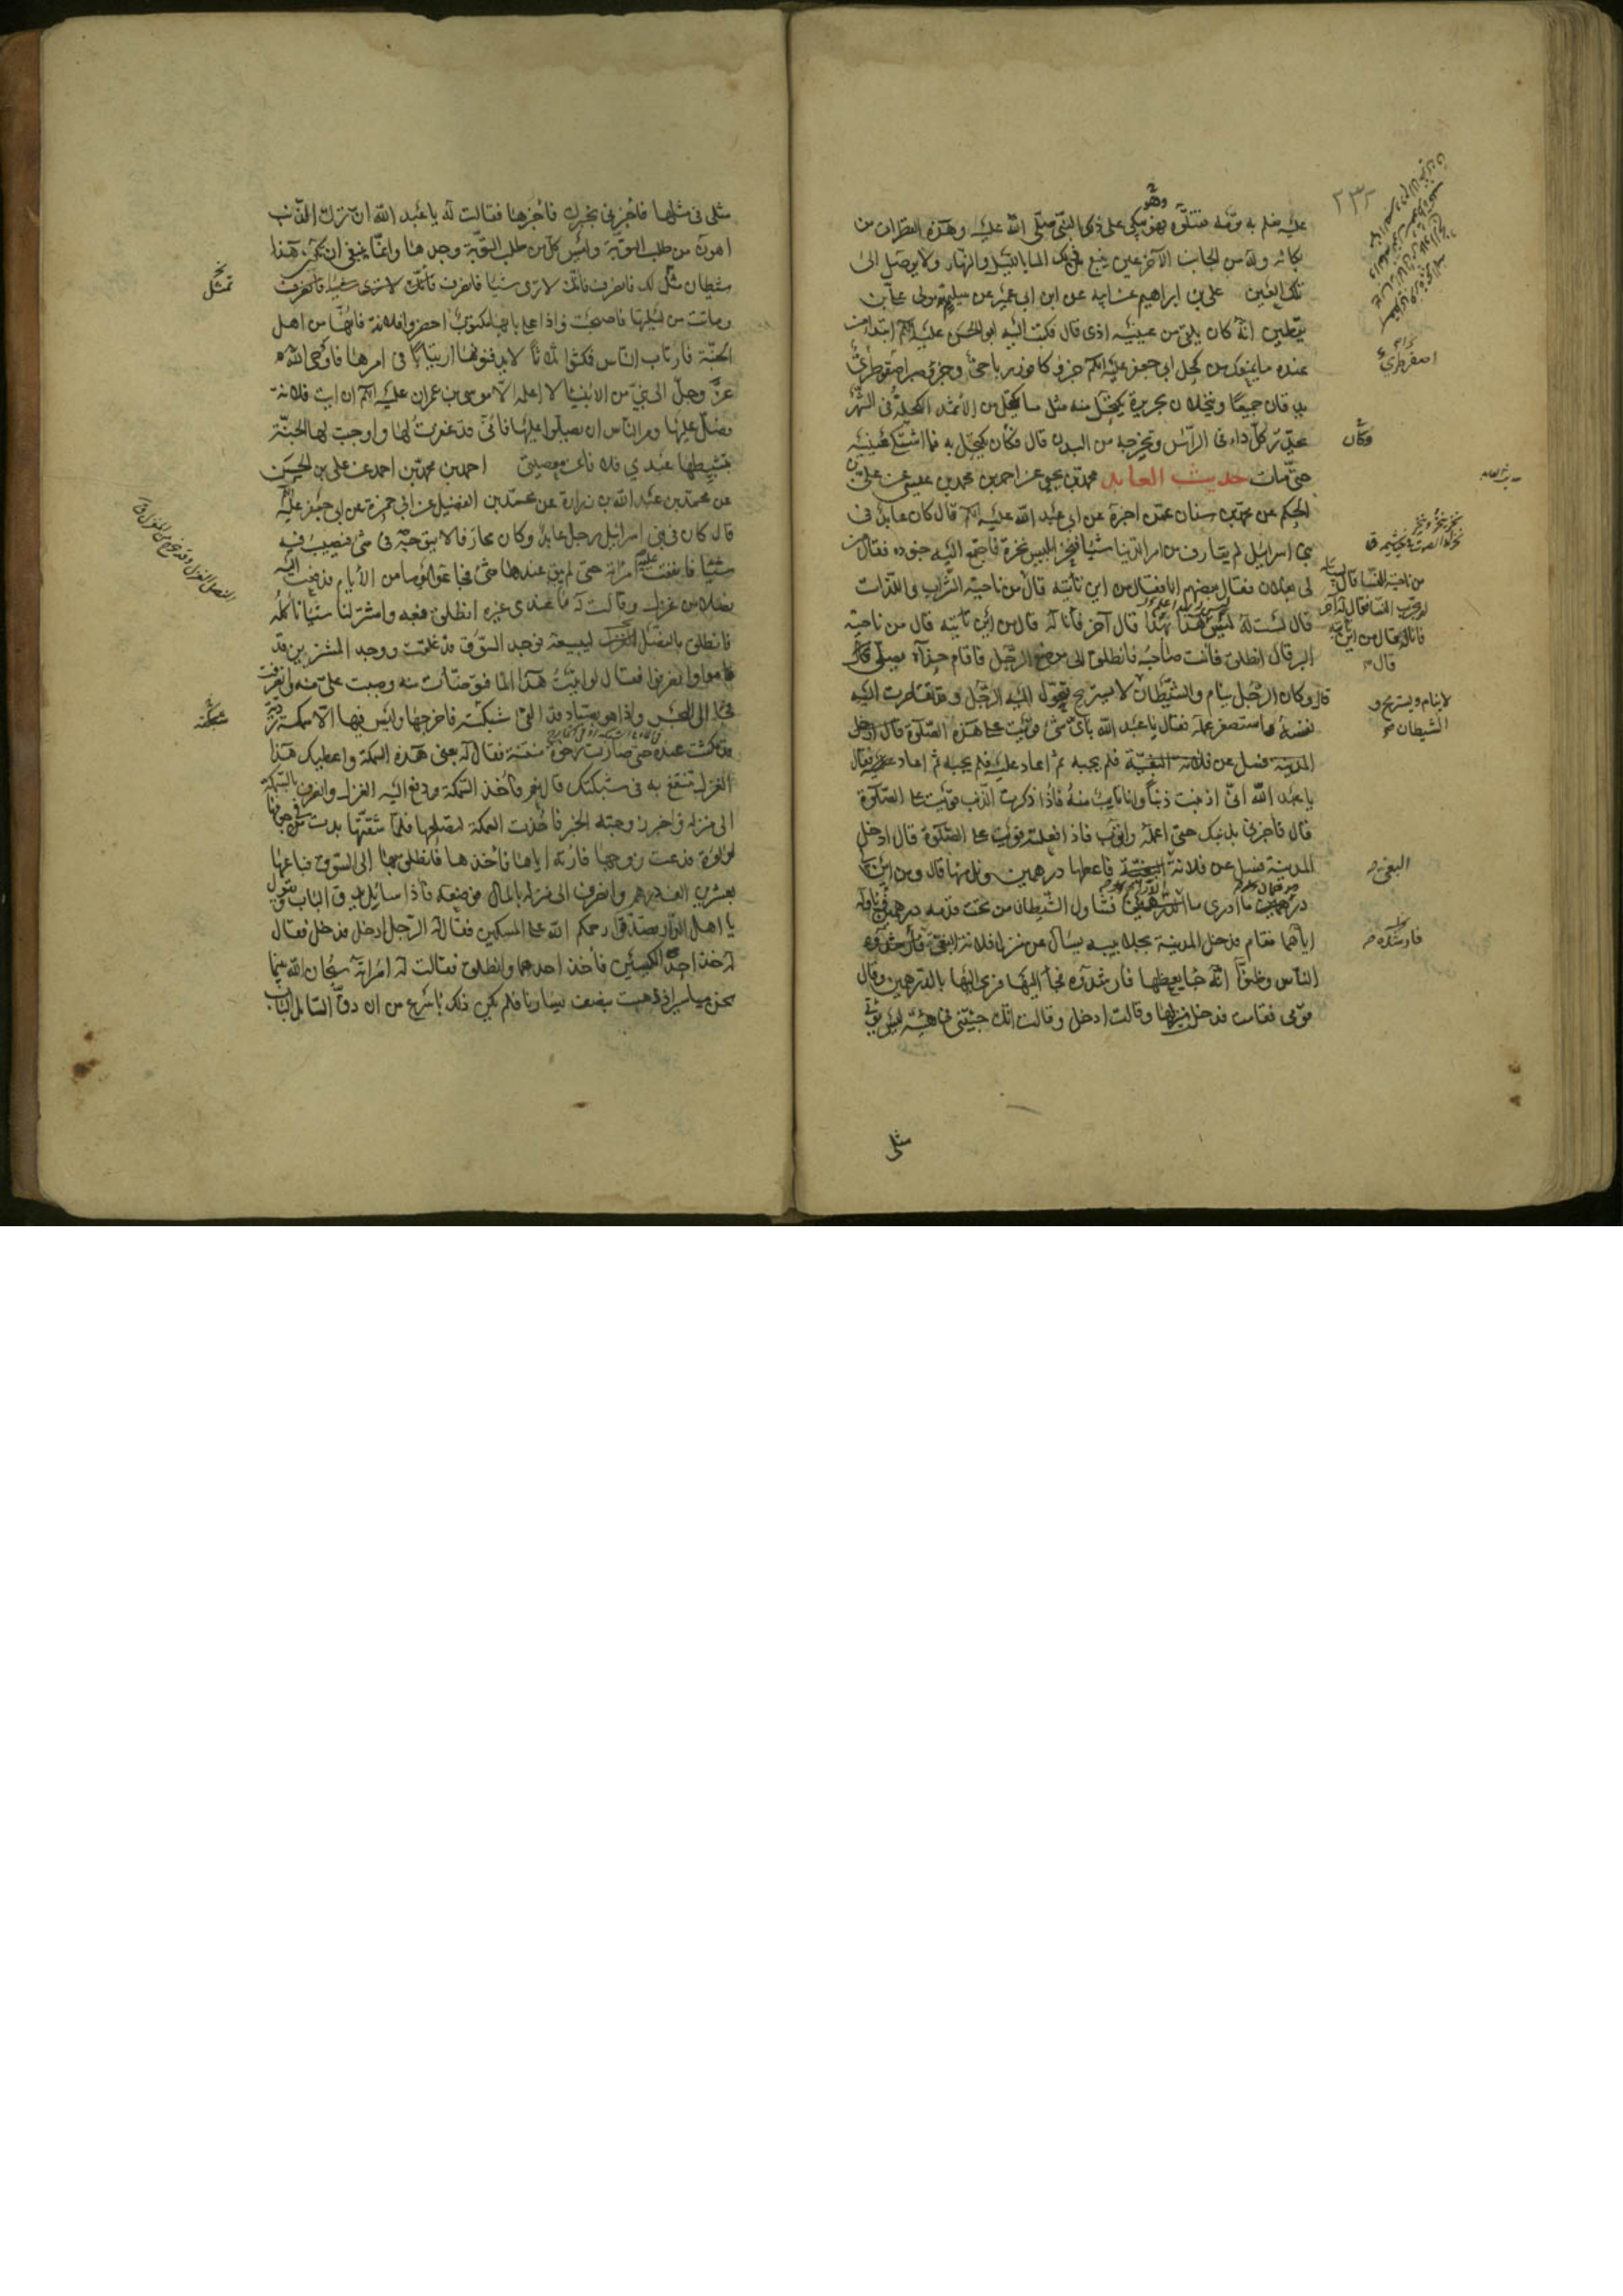 عليه فعلم به قومه فقتلوه فهو يبكي على ذكر النبي صلى الله عليه وهذه القطرات من
بكائه وله من الجانب الآخر عين ينبع من ذلك الماء بالليل والنهار ولا يوصل الى
تلك العين علي بن ابراهيم عن ابيه عن ابن ابي عمير عن سليم مولى علي بن
يقطين انه كان يلقى من عينيه اذى قال فكتب اليه ابو الحسن عليه السلم ابتداء من
عنده ما يمنعك من كحل ابي جعفر عليه السلم جزء كافور رباحي وجزء صبر اصقوطري
يدقان جميعا وينخلان بحريرة يكتحل منه مثل ما يكتحل من الاثمد الكحلة في الشهر
تحدر كل داء في الراس وتخرجه من البدن قال فكان يكتحل به فما اشتكى عينيه
حتى مات حديث العابد محمد بن يحيى عن احمد بن محمد بن عيسى عن علي بن
الحكم عن محمد بن سنان عمن اخبره عن ابي عبد الله عليه السلم قال كان عابد في
بني اسرائيل لم يقارف من امر الدنيا شيئا فنخر ابليس نخرة فاجتمع اليه جنوده فقال من
لي بفلان فقال بعضهم انا فقال من اين تأتيه قال من ناحية الشراب واللذات
قال لست له ليس هذا بهذا قال آخر فأنا له قال من اين تأتيه قال من ناحية
البر قال انطلق فانت صاحبه فانطلق الى موضع الرجل فاقام حذاه يصلي
قال وكان الرجل ينام والشيطان لا يستريح فتحول اليه الرجل وقد تقاصرت اليه
نفسه واستصغر عمله فقال يا عبد الله باي شيء قويت على هذه الصلوة قال ادخل
المدينة فسل عن فلانة البغية فلم يجبه ثم اعاد عليه فلم يجبه ثم اعاد عليه فقال
يا عبد الله اني اذنبت ذنبا وانا تايب منه فاذا ذكرت الذنب قويت على الصلوة
قال فاخبرني بذنبك حتى اعمله واتوب فاذا فعلته قويت على الصلوة قال ادخل
المدينة فسل عن فلانة البغية فاعطها درهمين ونل منها قال ومن اين لي
درهمين ما ادري ما الدرهمين فتناول الشيطان من تحت قدمه درهمين فناوله
اياهما فقام فدخل المدينة بجلابيبه يسأل عن منزل فلانة البغية فأرشدوه
الناس وظنوا انه جاء يعظها فارشدوه فجاء اليها فرمى اليها بالدرهمين وقال
قومي فقامت فدخل منزلها وقالت ادخل وقالت انك جئتني في هيئة ليس يؤتى
مثلي
وهو
٢٣٢
اصقوطري
فكان
لا ينام ويستريح و
الشيطان
البغي
فارشدوه
مثلي في مثلها فأخبرني بخبرك فأخبرها فقالت له يا عبد الله ان ترك الذنب
اهون من طلب التوبة وليس كل من طلب التوبة وجدها وانما ينبغي ان يكون هذا
شيطان مثل لك فانصرف فانك لا ترى شيئا فانصرف فانك لا ترى شيئا فانصرف
وماتت من ليلتها فاصبحت فاذا على بابها مكتوب احضروا فلانة فانها من اهل
الجنة فارتاب الناس فمكثوا ثلاثا لا يدفنونها ارتيابا في امرها فاوحى الله
عز وجل الى نبي من الانبياء لا اعلمه الا موسى بن عمران عليه السلم ان ائت فلانة
فصل عليها ومر الناس ان يصلوا عليها فاني قد غفرت لها واوجبت لها الجنة
بتثبيطها عبدي فلانا عن معصيتي احمد بن محمد بن احمد عن علي بن الحسين
عن محمد بن عبد الله بن زرارة عن محمد بن الفضيل عن ابي حمزة عن ابي جعفر عليه السلم
قال كان في بني اسرائيل رجل عابد وكان محارفا لا يتوجه في شيء فيصيب فيه
شيئا فانفقت عليه امرأته حتى لم يبق عندها شيء فجاعوا يوما من الايام فدفعت اليه
نصلا من غزل وقالت له ما عندي غيره انطلق فبعه واشتر لنا شيئا نأكله
فانطلق بالنصل الغزل ليبيعه فوجد السوق قد غلقت ووجد المشترين قد
قاموا وانصرفوا فقال لو اتيت هذا الماء فتوضأت منه وصببت علي منه وانصرفت
فجاء الى البحر واذا هو بصياد قد القى شبكته فاخرجها وليس فيها الا سمكة ردية
قد مكثت عنده حتى صارت رخوة منتنة فقال له بعني هذه السمكة واعطيك هذا
الغزل تنتفع به في شبكتك قال نعم فأخذ السمكة ودفع اليه الغزل وانصرف بالسمكة
الى منزله فاخبر زوجته الخبر فأخذت السمكة لتصلحها فلما شقتها بدت من جوفها
لؤلؤة فدعت زوجها فأرته اياها فأخذها فانطلق بها الى السوق فباعها
بعشرين الف درهم وانصرف الى منزله بالمال فوضعه فاذا سائل يدق الباب ويقول
يا اهل الدار تصدقوا رحمكم الله على المسكين فقال له الرجل ادخل فدخل فقال
له خذ احد الكيسين فأخذ احدهما وانطلق فقالت له امرأته سبحان الله بينما
نحن مياسير اذ ذهبت بنصف يسارنا فلم يكن ذلك باسرع من ان دق السائل الباب
تمثل
شبكته